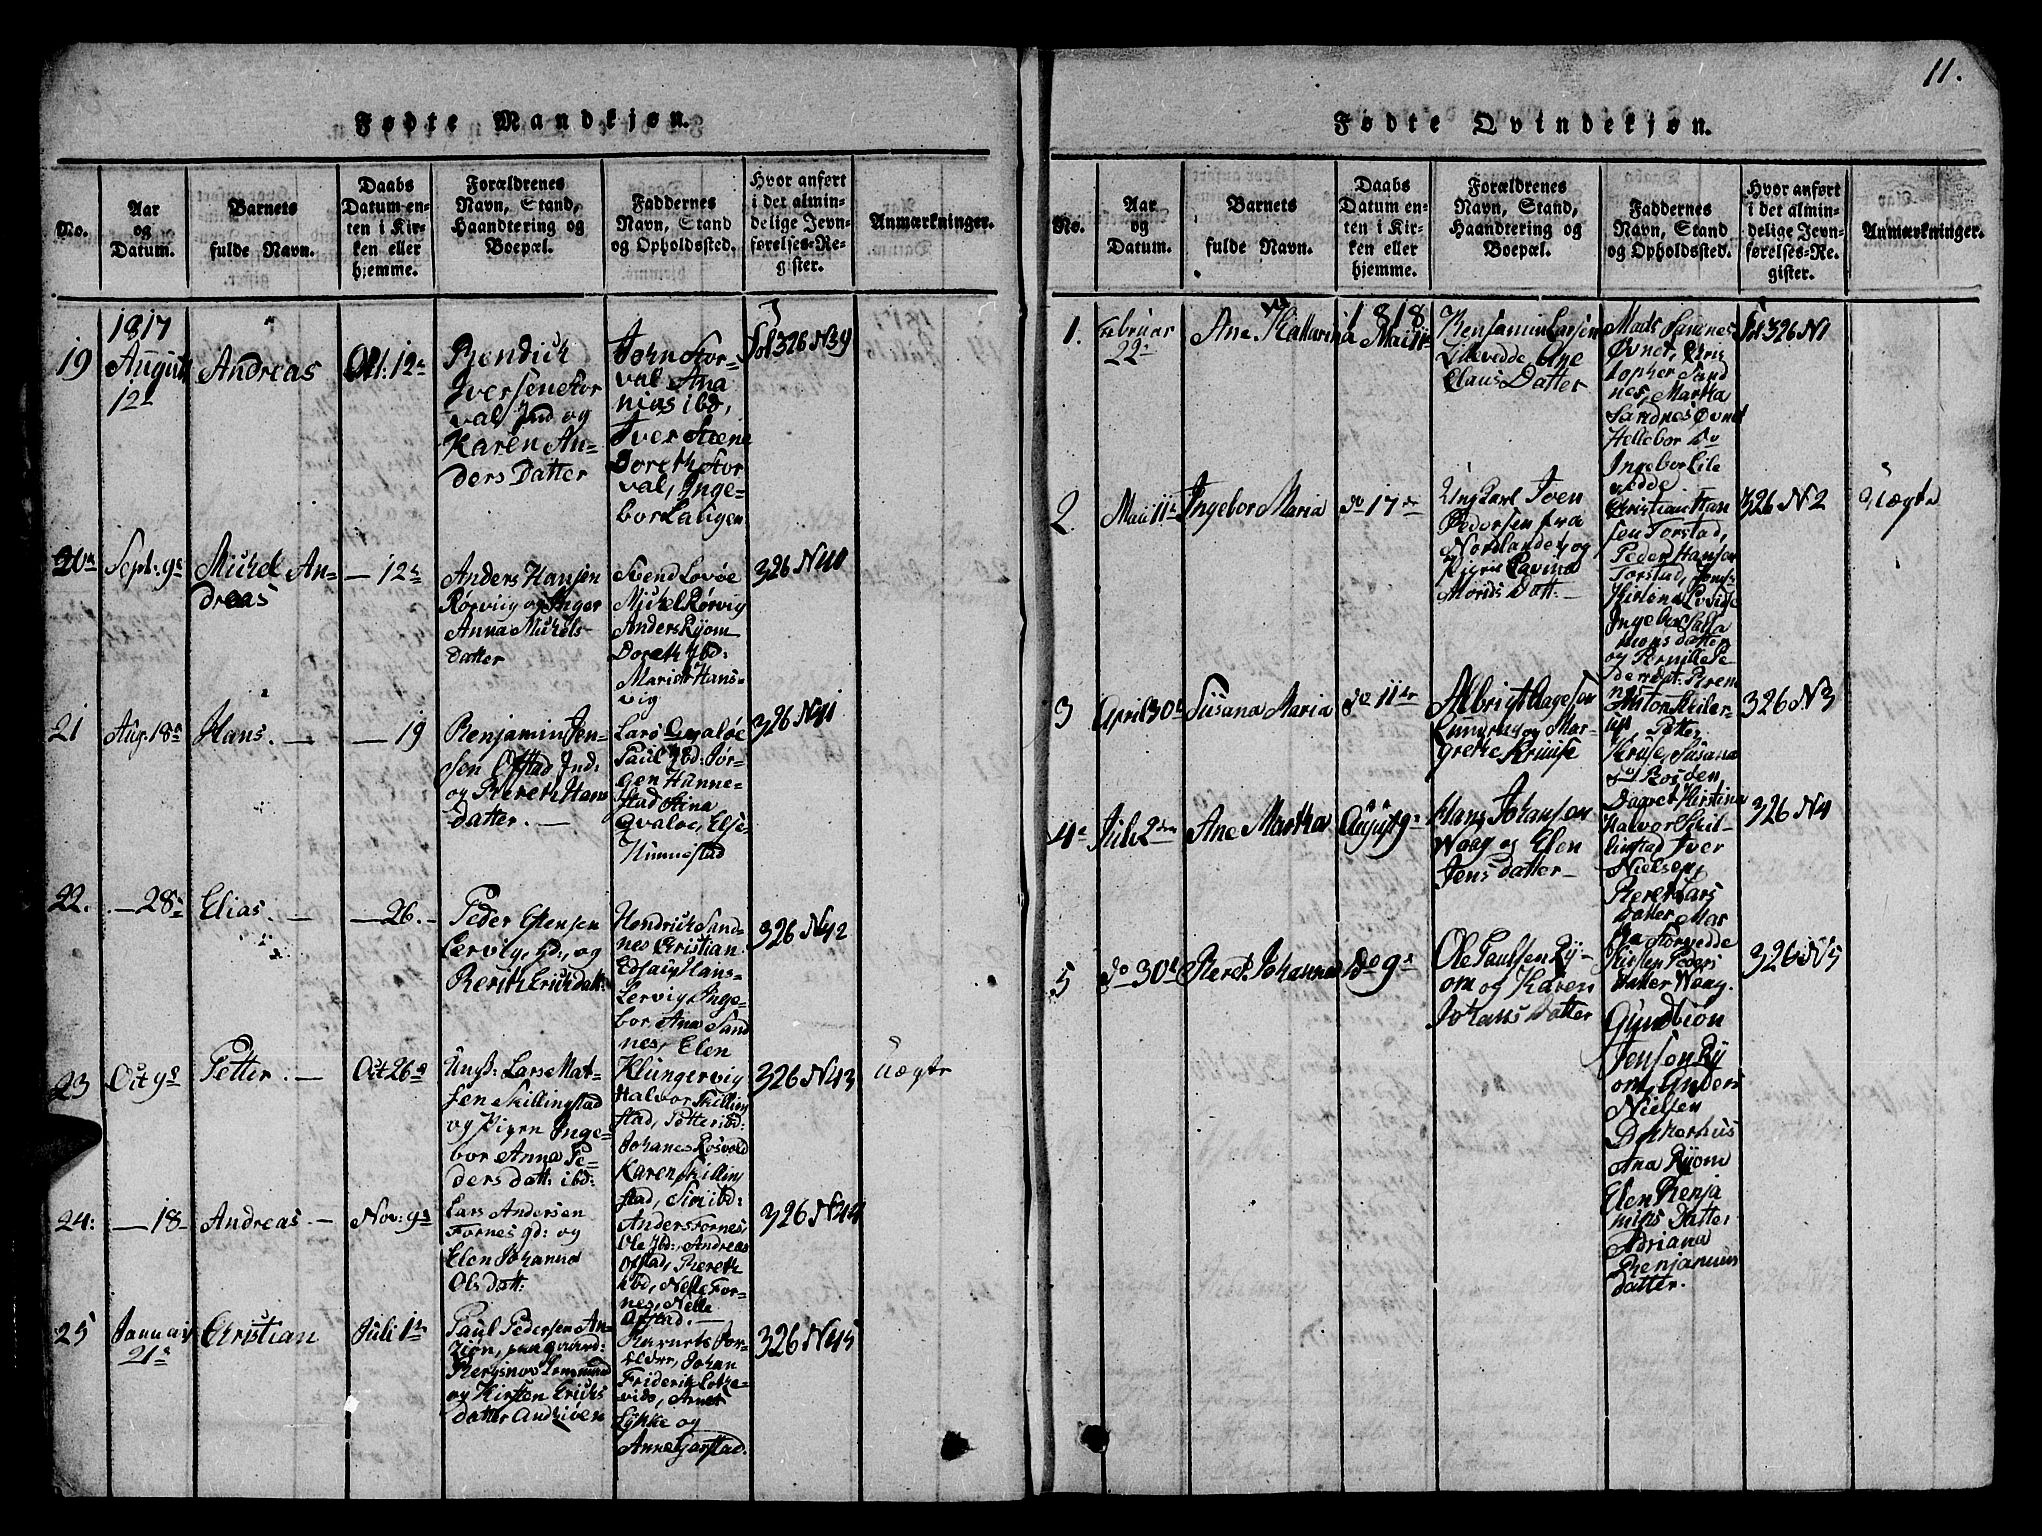 11.
Fødte Mandkjøn.
No.
Aar
og
Datum.
Barnets
fulde Navn.
Daabs
Datum en-
ten i Kir-
ken eller
hjemme.
Forældrenes
Navn, Stand,
Haandtering og
Boepæl.
Faddernes
Navn, Stand
og Opholdssted.
Hvor anført
i det almin-
delige Jevn-
førelses-Re-
gister.
Anmærkninger.
19
1817
August
12
Andreas
Oct: 12
Bendich
Iversen Stor
val, Ind og
Karen An-
ders Datter
John Stor-
val Ana
nias ibd,
Iver Stene
Doreth Stor
val, Inge-
bor Laugen
Fol 326 N39
20
Sept: 9
Michel An-
dreas
— 12
Anders Hansen
Rørviig og Inger
Anna Michels-
datter
Svend Lovøe
Michel Rørvig
Anders Ryom
Doreth Ibd:
Marith Hans-
vig
326 N40
21
Aug. 18
Hans. —
— 19
Benjamin Jen-
sen Ofstad Ind:
og Bereth Hans
datter. —
Lars Qvaløe
Paul Ibd: Jør-
gen Hunne-
stad Stina
Qvaloe, Else
Hunnestad
326 N41
22.
— 28
Elias. —
— 26. —
Peder Estensen
Lervig, gd., og
Berith Erichdatt:
Hendrich Sand-
nes Christian
Edsaug Hans-
Lervig Inge-
bor Ana Sand
nes, Elen
Klungervig
326 N42
23
Oct 9
Petter. —
Oct 26
Ungk: Lars Mat-
sen Skillingstad
og Pigen Inge-
bor Anna Pe-
ders datt: ibd:
Halvor Skilling
stad, Petter ibd:
Johanes Rosvold
Karen Skilling
stad, Siri ibd:
326 N43
Uægte
24:
— 18-
Andreas —
Nov: 9
Lars Andersen
Fornes gd: og
Elen Johanna
Ols datt:
Anders Fornes,
Ole Ibd:, Andreas
Ofstad, Bereth
ibd, Nelle For-
nes, Nelle
Ofstad. —
326 N44
25
Januari
21
Christian
Juli 1
Paul Pedersen An-
og Kirsten Erichs
datter
Barnets For-
eldre, Johan
Friderik
Lykke og
Anne Garstad.
326 N45
Fødte Qvindekjøn.
No.
Aar
og
Datum.
Barnets
fulde Navn.
Daabs
Datum en-
ten i Kir-
ken eller
hjemme.
Forældrenes
Navn, Stand,
Haandtering og
Boepæl.
Faddernes
Navn, Stand
og Opholdssted.
Hvor anført
i det almin-
delige Jevn-
førelses-Re-
gister.
Anmærkninger.
1.
Februar
22
Ane Kattarina
1818
Mai 11
Benjamin Larsen
Lillevedde, Ane
Claus Datter
Mads Sandnes
Øvnet, Chris
topher Sand
nes, Martha
Sandnes Øvnet
Hellebor Do
Ingebor Lile
vedde
Fol 326 N1
2
Mai 11
Ingebor Maria
do 17
Ung Karl Iven
Pedersen fra
Nordlandet, og
Pigen Lavina
Morids Datt: —
Christian Han
sen Torstad,
Peder Hansen
Torstad,
Ingebor Salla
mons datter
og Pernille Pe
ders dat:
326 N2
Uægte
3
April 30
Susana Maria
do 11
Albrigt Aagesen
og Mar-
grethe Kruuse
Petter
Kruse, Susana
326 N3
4
Juli 2
Ane Martha
August 9
Hans Johansen
Waag og Elen
Jens datter —
Dagret Kirstina
Halvor Skil-
linstad Iver
Nielsen,
Beret Lars
datter Mar
Storvedde
Kirsten Peders
datter Waag.
326 N4
5
do 30
Beret Johanna
do 9
Ole Paulsen Ry-
om og Karen
Johans Datter
Gundbion
Jensen Ry
om, Anders
Nielsen
Ana Ryom
Elen Benja
mins Datter
Adriana
Benjamins
datter.
326 N5